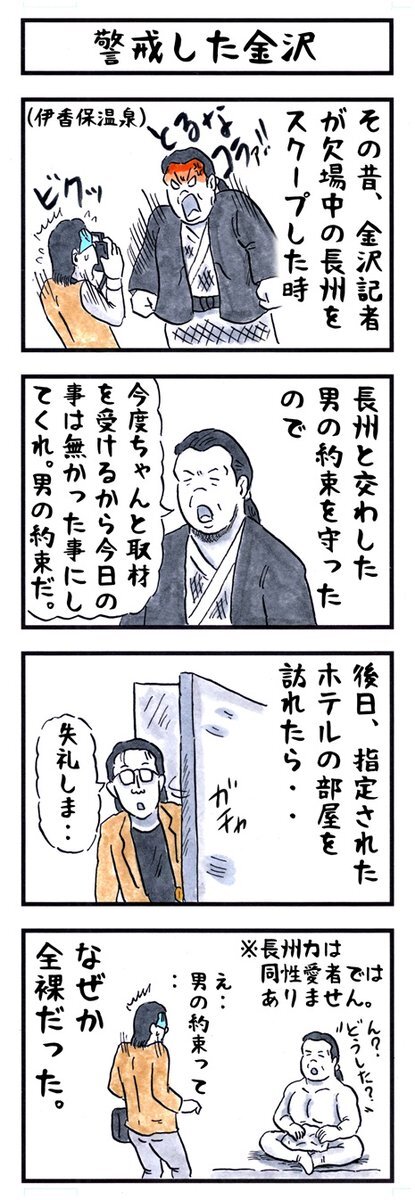 警戒した金沢
その昔、金沢記者
が欠場中の長州を
スクープした時
とるな
コラァ!!
(伊香保温泉)
ビクッ
長州と交わした
男の約束を守った
ので
今度ちゃんと取材
を受けるから今日の
事は無かった事にし
てくれ。男の約束だ。
後日、指定された
ホテルの部屋を
訪れたら・・
ガチャ
失礼しま・・
※長州力は
同性愛者では
ありません。
ん?
どうした?
え・・
男の約束って
・・
なぜか
全裸だった。